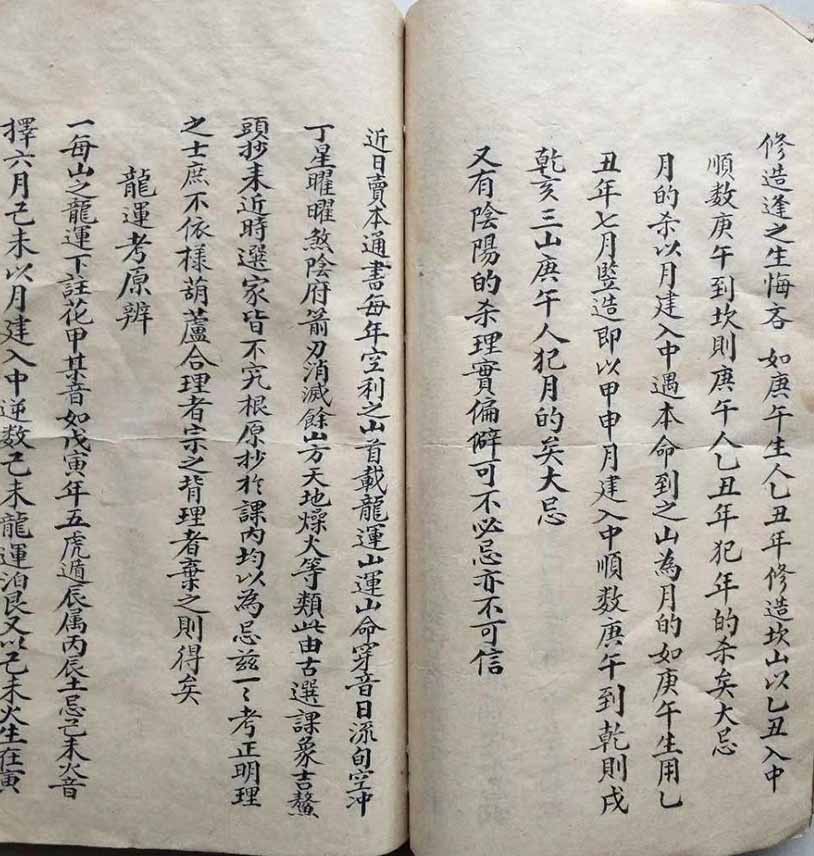 修造逢之生悔吝 如庚午生人乙丑年修造坎山以乙丑入中
順数庚午到坎則庚午人乙丑年犯年的杀矣大忌
月的杀以月建入中遇本命到之山為月的如庚午生用乙
丑年七月豎造即以甲申月建入中順数庚午到乾則戌
乾亥三山庚午人犯月的矣大忌
又有陰陽的杀理實偏僻可不必忌亦不可信
近日賣本通書每年空利之山首載龍運山運山命穿音日流旬空冲
丁星曜曜煞陰府箭刃消滅餘山方天地燥火等類此由古選課象吉鰲
頭抄来近時選家皆不究根原抄於課内均以為忌兹一〻考正明理
之士庶不依樣葫蘆合理者宗之背理者棄之則得矣
龍運考原辨
一每山之龍運下註花甲某音如戊寅年五虎遁辰属丙辰土忌己未火音
擇六月己未以月建入中逆数己未龍運泊艮又以己未火生在寅